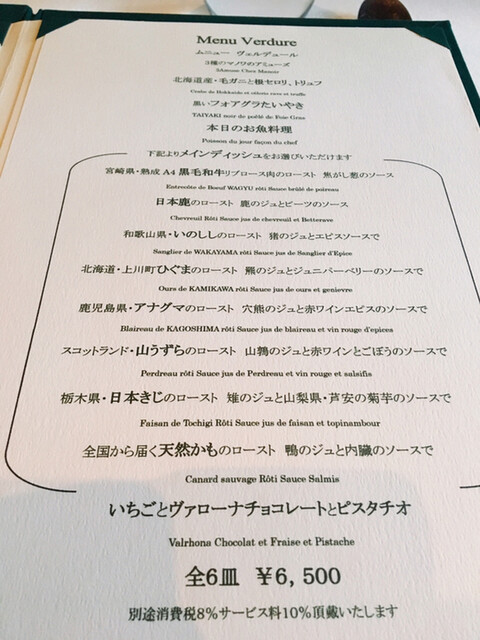 Menu Verdure
ムニュー ヴェルデュール
3種のマノワのアミューズ
Mousse Chez Manoir
北海道産・毛ガニと根セロリ、トリュフ
Crabe de Hokkaido et céleris rave et truffe
黒いフォアグラたいやき
TAIYAKI noir de poêlé de Foie Gras
本日のお魚料理
Poisson du jour façon du chef
下記よりメインディッシュをお選びいただけます
宮崎県・熟成 A4 黒毛和牛リブロース肉のロースト 焦がし葱のソース
Entrecôte de Boeuf WAGYU rôti Sauce brûlé de poireau
日本鹿のロースト 鹿のジュとビーツのソース
Chevreuil Rôti Sauce jus de chevreuil et Betterave
和歌山県・いのししのロースト 猪のジュとエピスソースで
Sanglier de WAKAYAMA rôti Sauce jus de Sanglier d'Epice
北海道・上川町ひぐまのロースト 熊のジュとジュニパーベリーのソースで
Ours de KAMIKAWA rôti Sauce jus de ours et genievre
鹿児島県・アナグマのロースト 穴熊のジュと赤ワインエピスのソースで
Blaireau de KAGOSHIMA rôti Sauce jus de blaireau et vin rouge d'epices
スコットランド・山うずらのロースト 山鶉のジュと赤ワインとごぼうのソースで
Perdreau rôti Sauce jus de Perdreau et vin rouge et salsifis
栃木県・日本きじのロースト 雉のジュと山梨県・芦安の菊芋のソースで
Faisan de Tochigi Rôti Sauce jus de faisan et topinambour
全国から届く天然かものロースト 鴨のジュと内臓のソースで
Canard sauvage Rôti Sauce Salmis
いちごとヴァローナチョコレートとピスタチオ
Valrhona Chocolat et Fraise et Pistache
全6皿 ￥6,500
別途消費税8%サービス料10%頂戴いたします